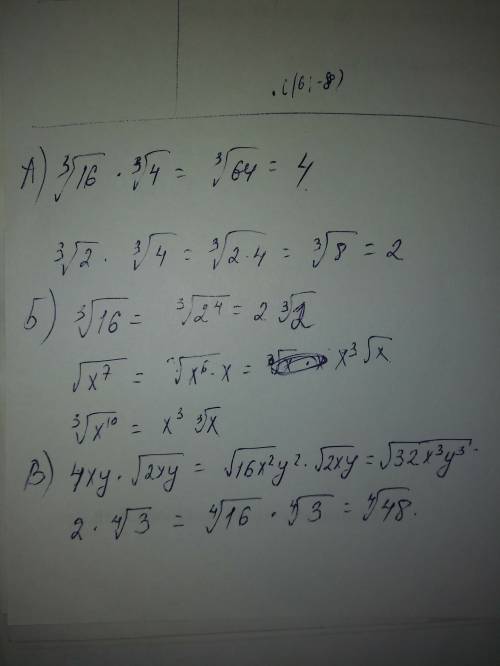 .C(6;-8)
А) ∛16 · ∛4 = ∛64 = 4
∛2 · ∛4 = ∛2·4 = ∛8 = 2
Б) ∛16 = ∛2⁴ = 2 ∛2
√x⁷ = √x⁶·x = x³√x
∛x¹⁰ = x³ ∛x
В) 4xy·√2xy = √16x²y²·√2xy = √32x³y³.
2·∜3 = ∜16 · ∜3 = ∜48.